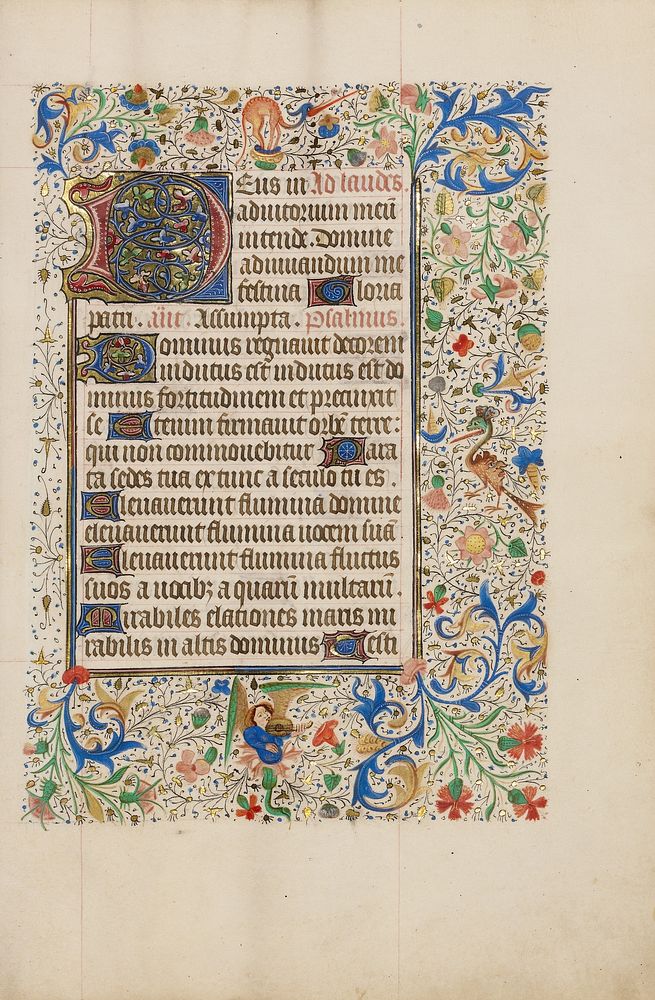 Deus in Ad laudes.
adiutorium meū
intende. Domine
adiuuandum me
festina Gloria
patri. añt. Assumpta. Psalmus.
Dominus regnauit decorem
indutus est indutus est do
minus fortitudinem et precinxit
se Etenim firmauit orbē terre:
qui non commouebitur Para
ta sedes tua ex tunc a seculo tu es.
Eleuauerunt flumina domine
eleuauerunt flumina uocem suā
Eleuauerunt flumina fluctus
suos a uocibꝫ aquarū multarū.
Mirabiles elationes maris mi
rabilis in altis dominus Testi